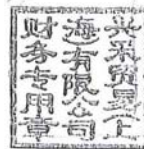 兴贸易上
海有限公司
财务专用章